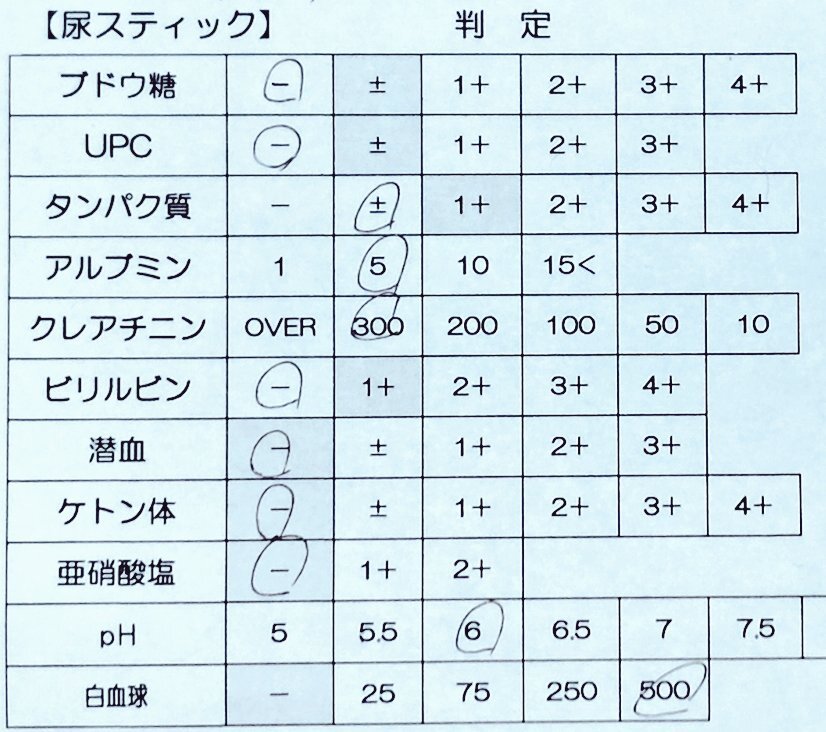 【尿スティック】 判 定
ブドウ糖 － ± 1+ 2+ 3+ 4+
UPC － ± 1+ 2+ 3+
タンパク質 － ± 1+ 2+ 3+ 4+
アルブミン 1 5 10 15<
クレアチニン OVER 300 200 100 50 10
ビリルビン － 1+ 2+ 3+ 4+
潜血 － ± 1+ 2+ 3+
ケトン体 － ± 1+ 2+ 3+ 4+
亜硝酸塩 － 1+ 2+
pH 5 5.5 6 6.5 7 7.5
白血球 － 25 75 250 500